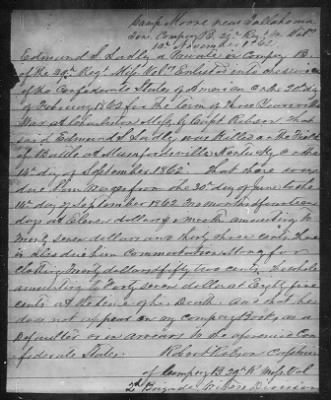 Camp Moore near Tallahoma
Ten. Company B, 29th Regt Miss Vols
12th November 1862
Edmund S. Ladly a Private in Company B
of the 29th Regt Miss Vols Enlisted into the service
of the Confederate States of American on the 20th day
of February 1862 for the term of three Years or the
War at Charleston Miss by Capt Robson That
said Edmund S. Ladly was Killed on the Field
of Battle at Munfordsville Kentucky on the
14th day of September 1862. That there were
due him wages from the 30th day of June to the
14th day of September 1862 two months fourteen
days at Eleven dollars a month amounting to
twenty seven dollars and thirty three cents there
is also due him Commutation Money for
clothing twenty dollars fifty two cents the whole
amounting to Forty seven dollars Eighty five
cents at the time of his Death And that he
does not appear on my company Books as a
defaulter or in arrears to the aforesaid Con
federate States.
Robert Robson Captain
of Company B, 29th Rt Miss Vol
2nd Brigade Withers Division